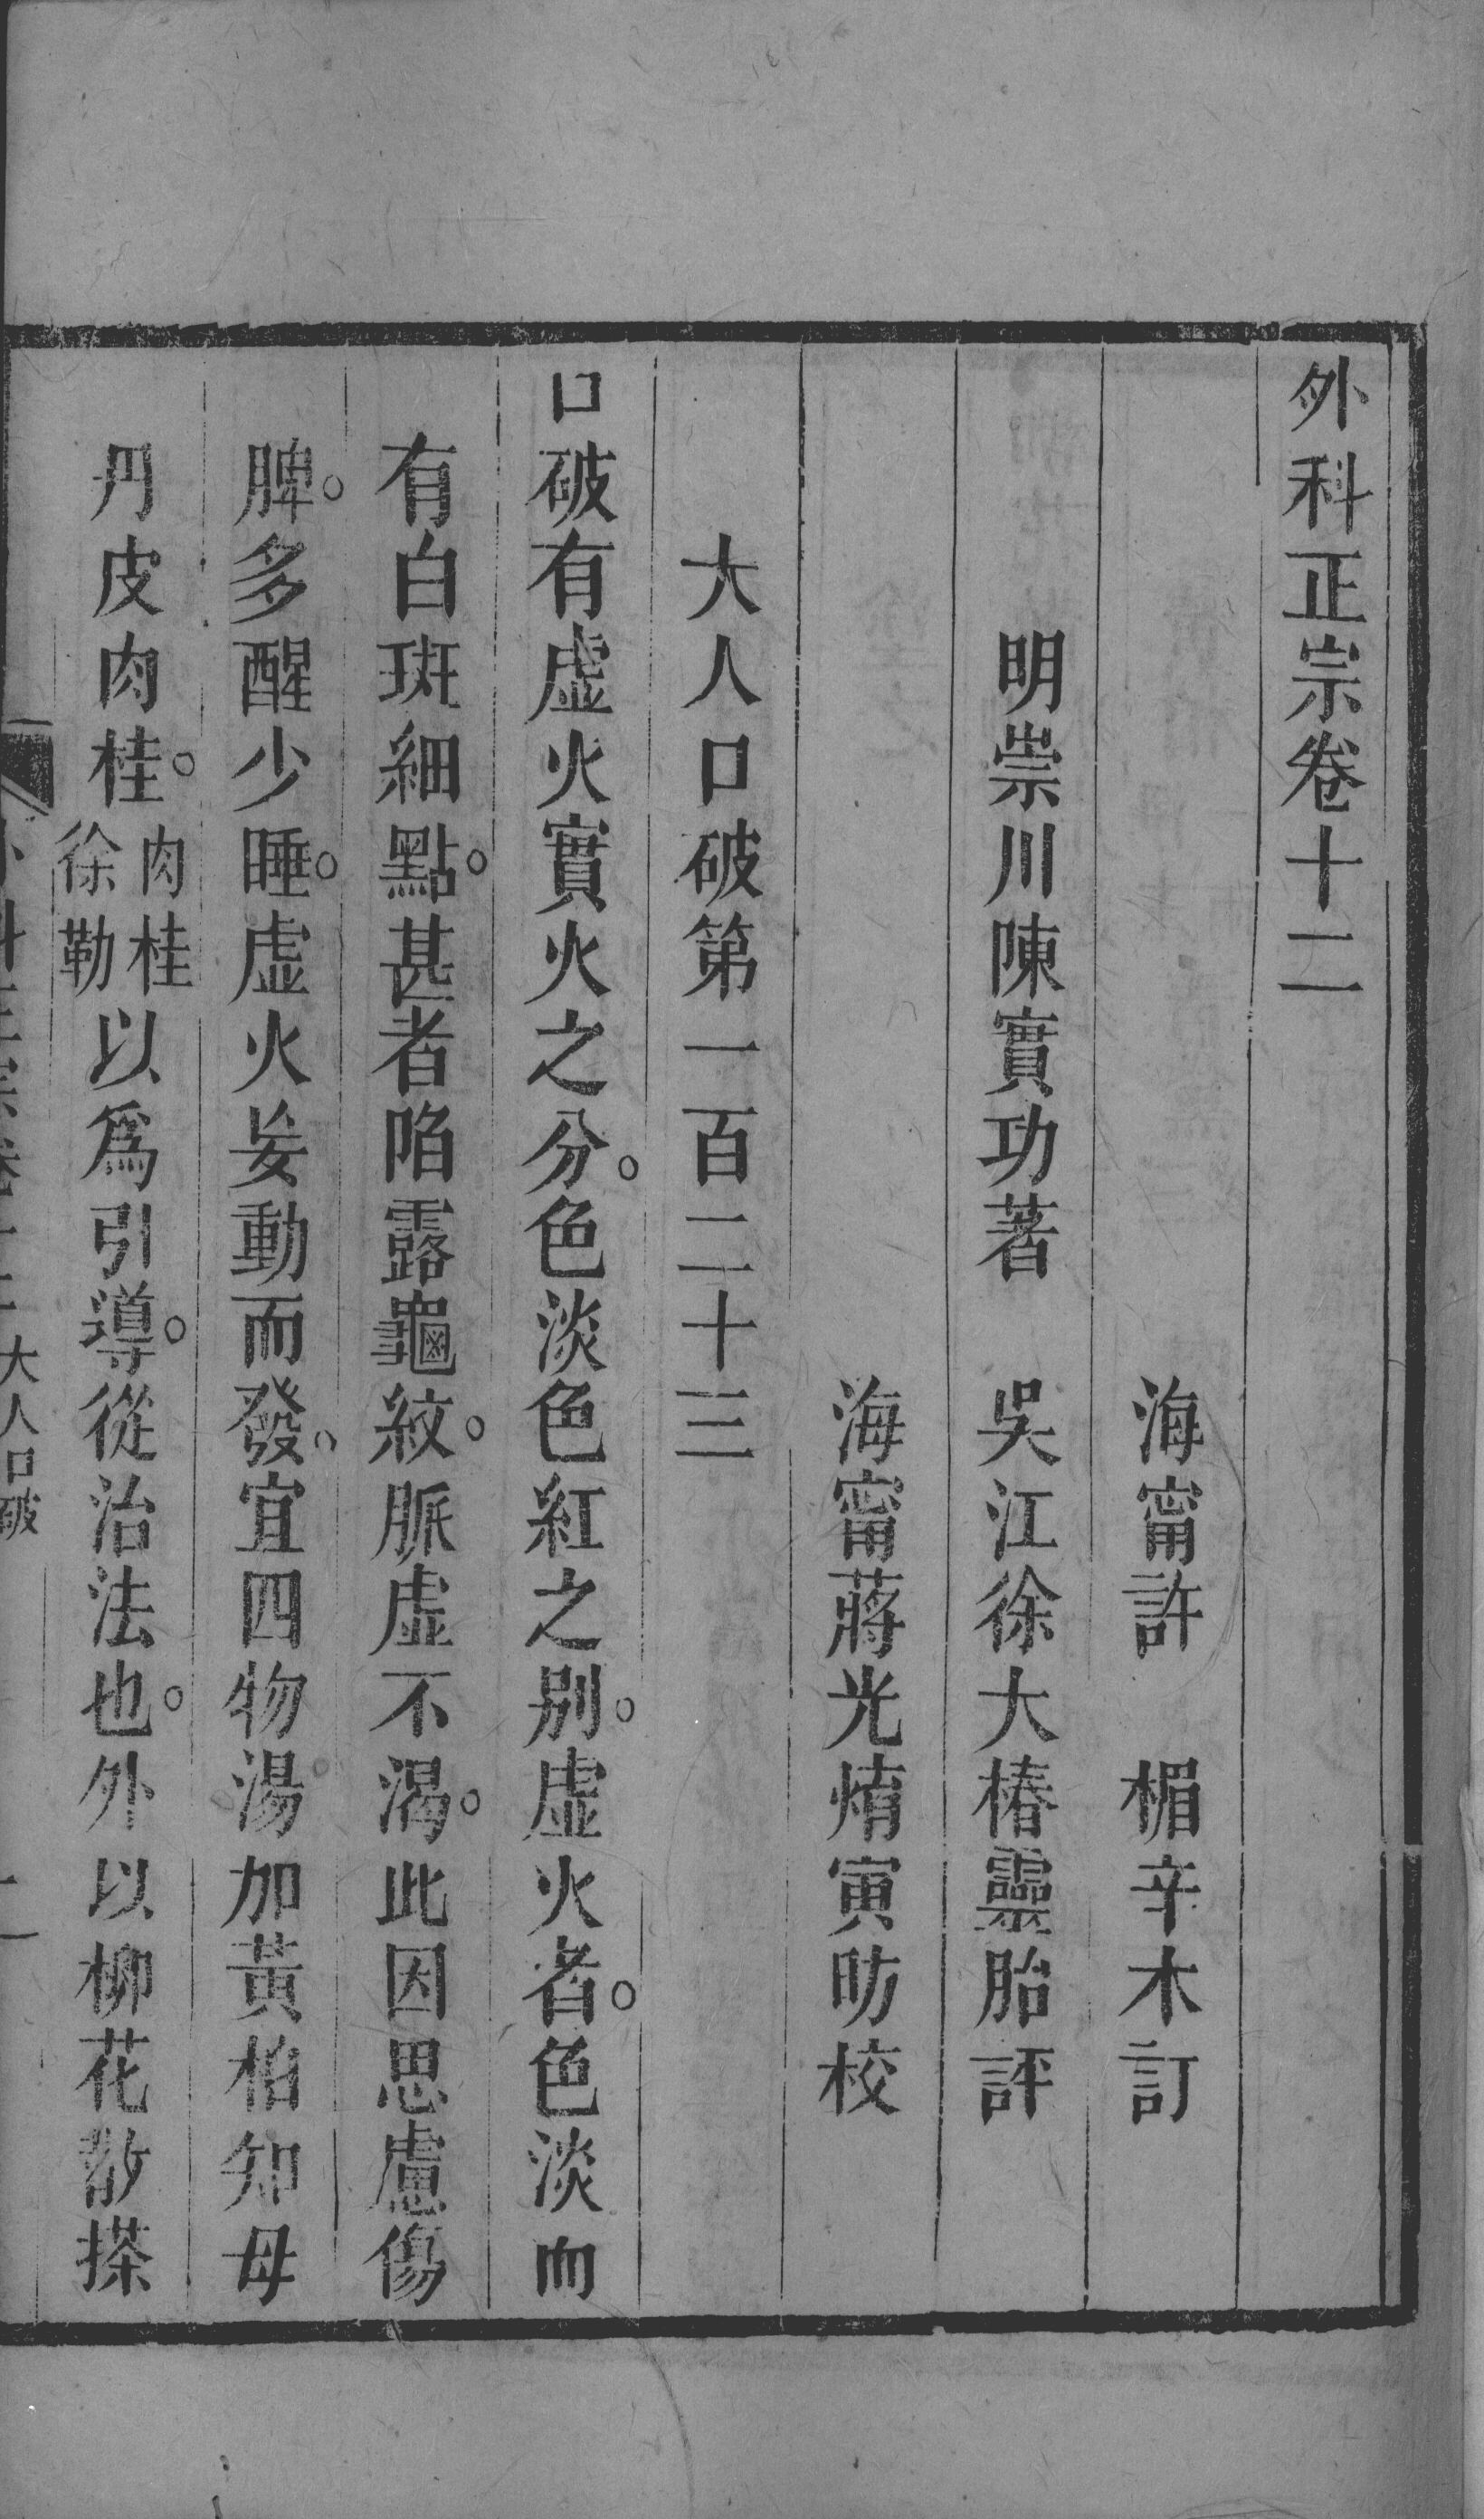 外科正宗卷十二
海甯許 楣辛木訂
明崇川陳實功著 吳江徐大椿靈胎評
海甯蔣光焴寅昉校
大人口破第一百二十三
口破有虛火實火之分。色淡色紅之別。虛火者。色淡而
有白斑細點。甚者陷露龜紋。脈虛不渴。此因思慮傷
脾。多醒少睡。虛火妄動而發。宜四物湯。加黃柏知母
丹皮肉桂。肉桂徐勒以為引導。從治法也。外以柳花散搽
外科正宗卷十二 大人口破 一